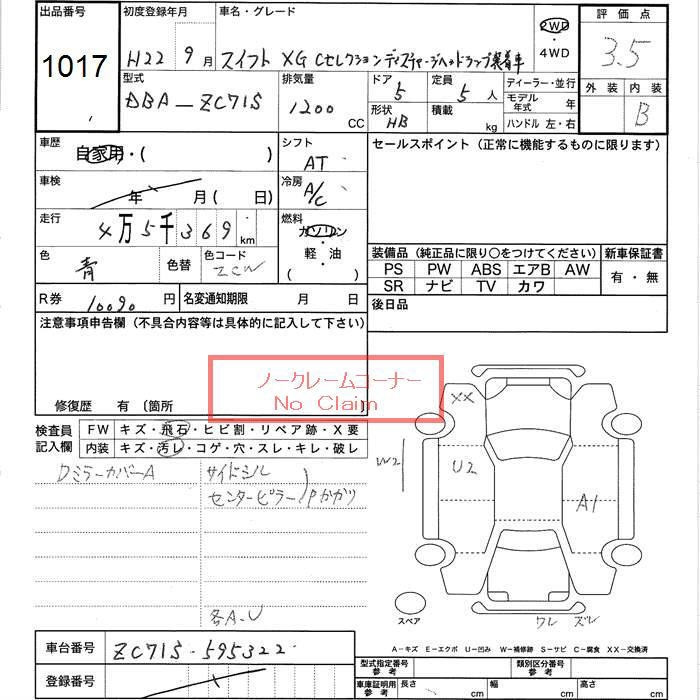 出品番号 初度登録年月 車名・グレード 2WD 評価点
1017 H22 9月 スイフト XG Cセレクションディスチャージヘッドランプ装着車 ・4WD 3.5
型式 排気量 ドア 定員 ディーラー・並行 外装 内装
DBA-ZC71S 1200 CC 5 5人 モデル年式 年 B
形状 HB 積載 kg ハンドル 左・右
車歴 自家用・( ) シフト AT セールスポイント（正常に機能するものに限ります）
車検 年 月(日) 冷房 A/C
走行 4万5千369km 燃料 ガソリン・軽油( )
色 青 色替 色コード ZCW 装備品（純正品に限り○をつけてください） 新車保証書
PS PW ABS エアB AW 有・無
SR ナビ TV カワ
R券 10090円 名変通知期限 月 日 後日品
注意事項申告欄（不具合内容等は具体的に記入して下さい）
ノークレームコーナー
No Claim
修復歴 有 〔箇所 〕
検査員記入欄 FW キズ・飛石・ヒビ割・リペア跡・X要
内装 キズ・汚レ・コゲ・穴・スレ・キレ・破レ
DミラーカバーA サイドシル
センターピラー Pかかり
各A.U
XX
W2
U2
A1
スペア
ワレ ズレ
A−キズ E−エクボ U−凹み W−補修跡 S−サビ C−腐食 XX−交換済
車台番号 ZC71S-595322
登録番号
型式指定番号 参考 類別区分番号 参考
車庫証明用 参考 長さ cm 幅 cm 高さ cm